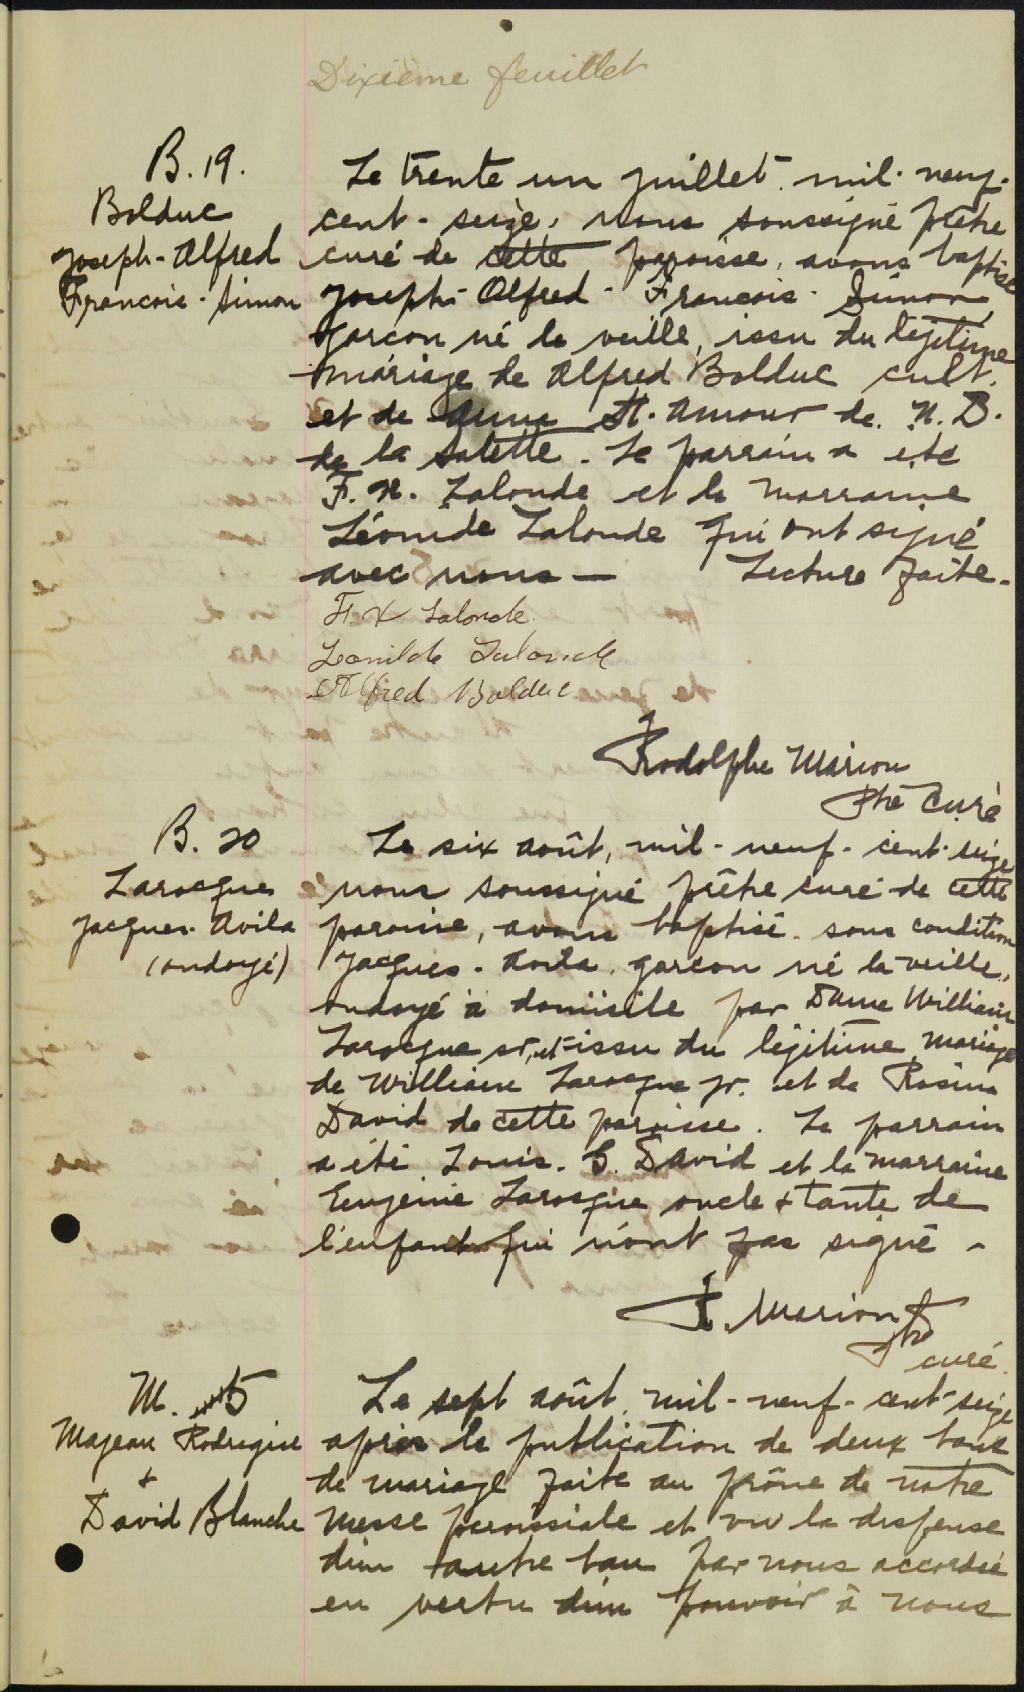 Dixième feuillet
B. 19.
Bolduc
Joseph-Alfred
Francois-Simon
Le trente un juillet mil-neuf-
cent-seize, nous soussigné prêtre
curé de cette paroisse, avons baptisé
Joseph-Alfred-Francois-Simon
garcon né la veille, issu du légitime
mariage de Alfred Bolduc cult.
et de Anna St. Amour de N. D.
de la Salette. Le parrain a été
F. X. Lalonde et la marraine
Léonide Lalonde qui ont signé
avec nous — Lecture faite.
F. X Lalonde
Leonilde Lalonde
Alfred Bolduc
J. Rodolphe Marion
Ptre Curé
B. 20
Larocque
Jacques-Avila
(ondoyé)
Le six août, mil-neuf-cent-seize
nous soussigné prêtre curé de cette
paroisse, avons baptisé sous condition
Jacques-Avila, garcon né la veille,
ondoyé à domicile par Dame William
Larocque sr, et issu du légitime mariage
de William Larocque jr. et de Rosina
David de cette paroisse. Le parrain
a été Louis. G. David et la marraine
Eugénie Larocque oncle & tante de
l'enfant qui n'ont pas signé -
J. R. Marion Ptre
curé
M. 5
Mageau Rodrigue
&
David Blanche
Le sept août mil-neuf-cent-seize
après la publication de deux bans
de mariage faite au prône de notre
messe paroissiale et vu la dispense
d'un autre ban par nous accordée
en vertu d'un pouvoir à nous